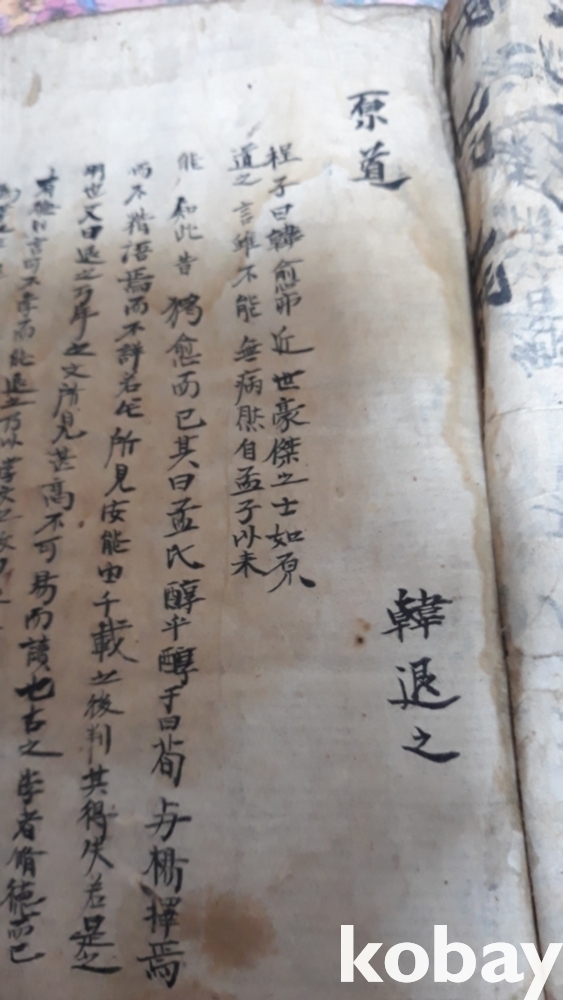 原道 韓退之
程子曰韓愈亦近世豪傑之士如原
道之言雖不能無病然自孟子以来
能知此者獨愈而已其曰孟氏醇乎醇于曰荀与楊擇焉
而不精語焉而不詳若无所見安能由千載之後判其得失若是之
明也又曰退之万年之文所見甚高不可易而讀也古之学者脩德而已
有德則言可不学而能退之乃以学文之故
kobay